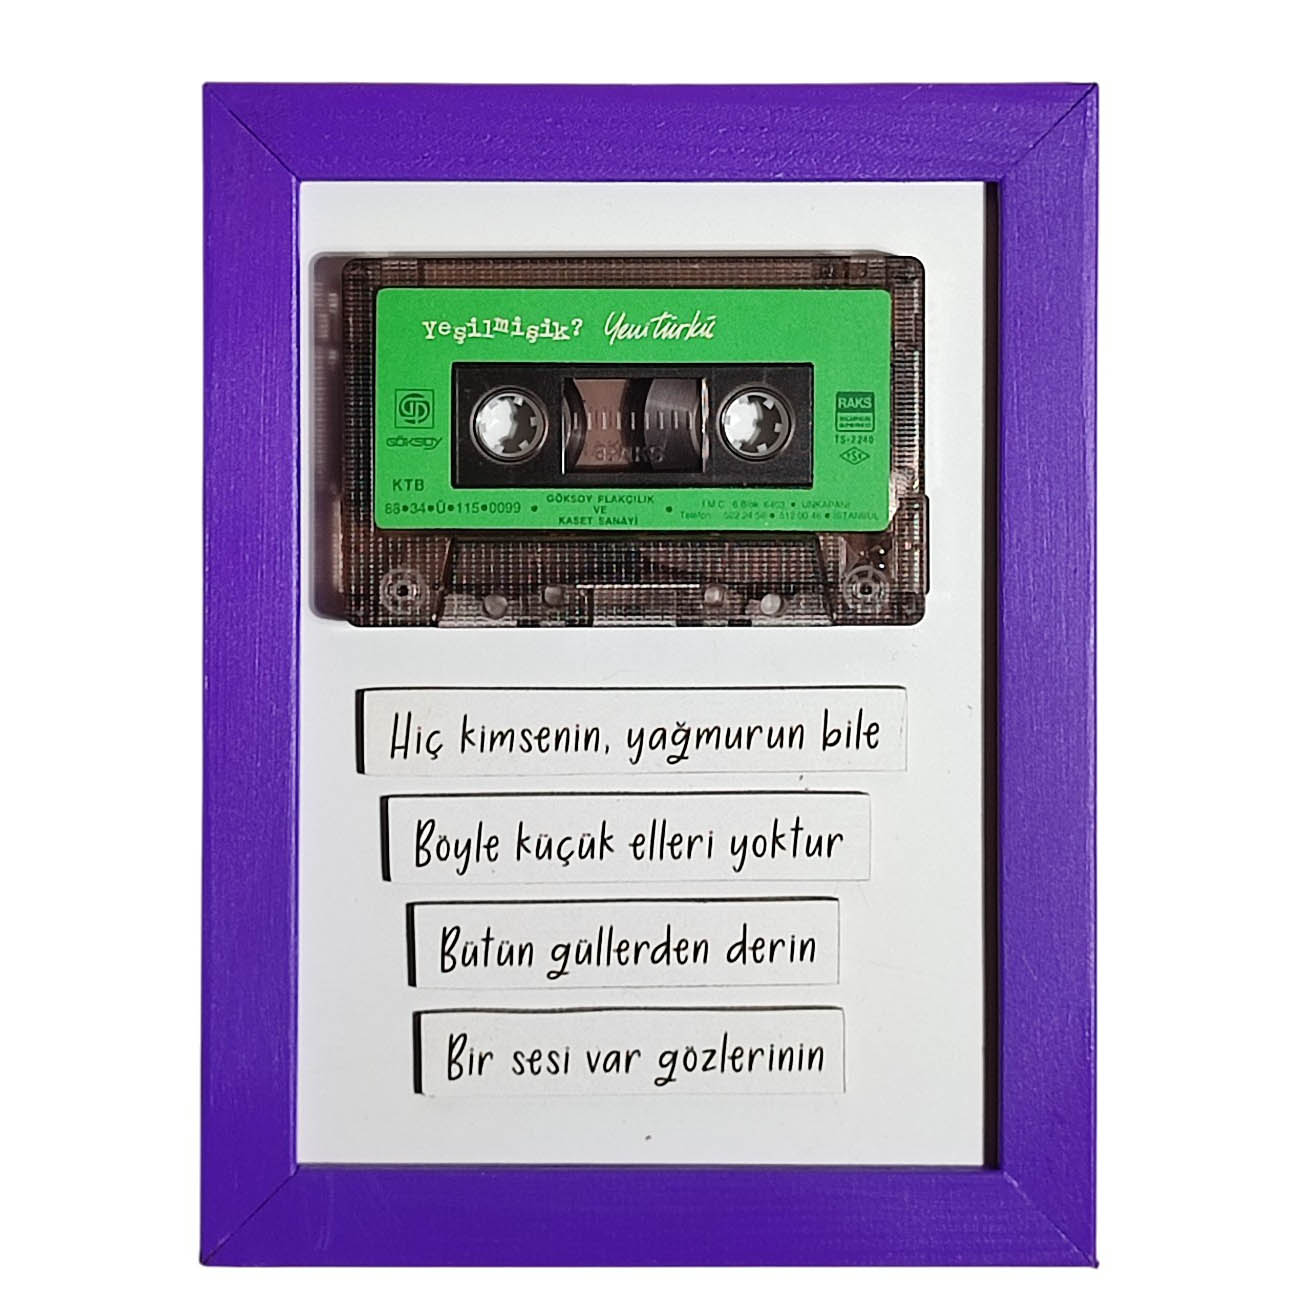 yeşilmişik? Yeni Türkü
GÖKSOY
RAKS
SUPER
STEREO
TS-2240
TSE
KTB
88•34•Ü•115•0099 • GÖKSOY PLAKÇILIK VE KASET SANAYİ • İ.M.Ç. 6.Blok 6403 • UNKAPANI
Telefon: 522 24 58 • 512 00 46 • İSTANBUL
RAKS
Hiç kimsenin, yağmurun bile
Böyle küçük elleri yoktur
Bütün güllerden derin
Bir sesi var gözlerinin